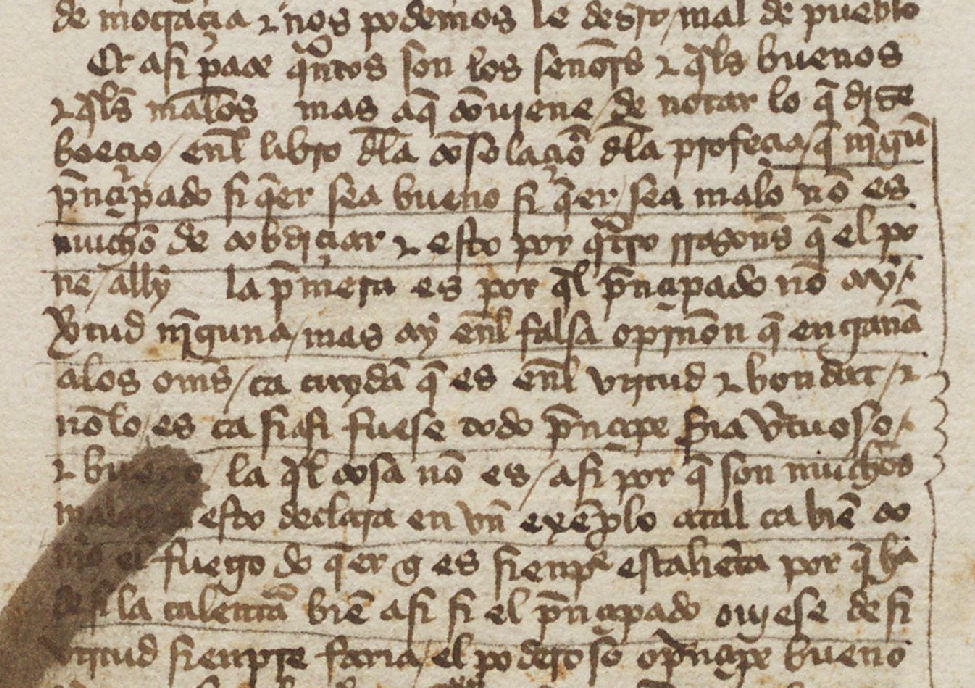 de mocraçia ⁊ nos podemos le desir mal de pueblo
Et asi paçe q̃ntos son los señors ⁊ q̃ls buenos
⁊ q̃ls malos mas aq̃ cõuiene / de notar lo q̃ dize
boeçio / enl libro dla cõsolaçiõ dla profeçia / q̃ nĩgũ
p̃nçipado si q̃er sea bueno si q̃er / sea malo nõ es
mucho de cobdiçiar ⁊ esto por q̃tro rrasons q̃ el po
ne / ally la p̃mera es por q̃l p̃nçipado nõ ay /
v̉tud nĩguna / mas ay enl falsa opinion q̃ enganã
alos oms / ca cuydã q̃ es enl virtud ⁊ bondat / ⁊
nõ lo / es ca si asi fuese todo p̃nçipe s̉ia v̉tuoso /
⁊ bueno / la q̃l cosa nõ es / asi por q̃ son muchos
esto declara en vn exẽplo atal ca biẽ co
el fuego do q̃er q̃ es sienp̃ escalieta por q̃ ha
de si la calentũa biẽ asi si el p̃nçipado ouiese de si
virtud sienpre faria / el poderoso o p̃nçipe bueno